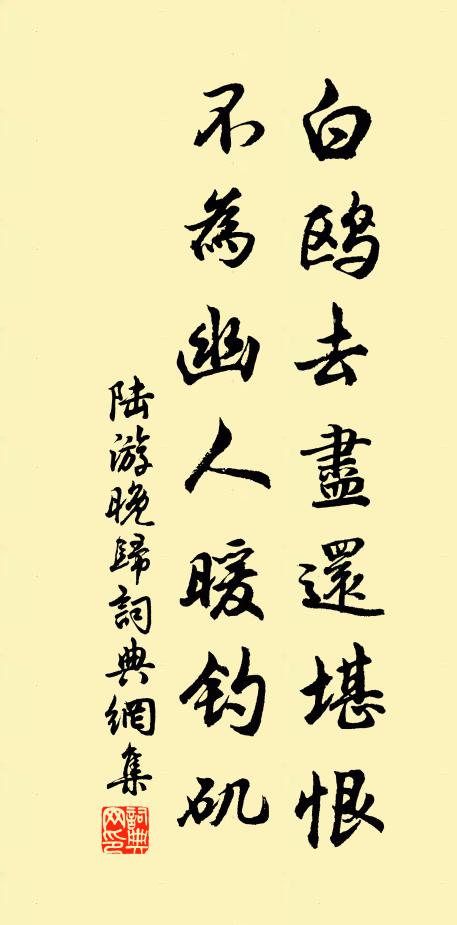 白鸥去盡還堪恨
不為幽人暖釣矶
陆游晚歸詞典網集
詞典網印